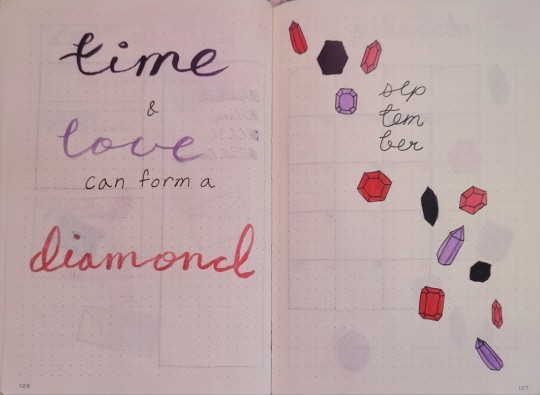 time
&
love
can form a
diamond
sep
tem
ber
127